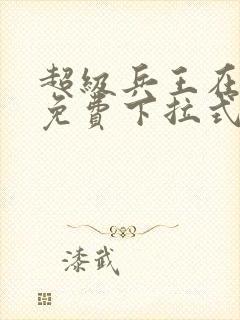 超级兵王在
免费下拉式
漆武